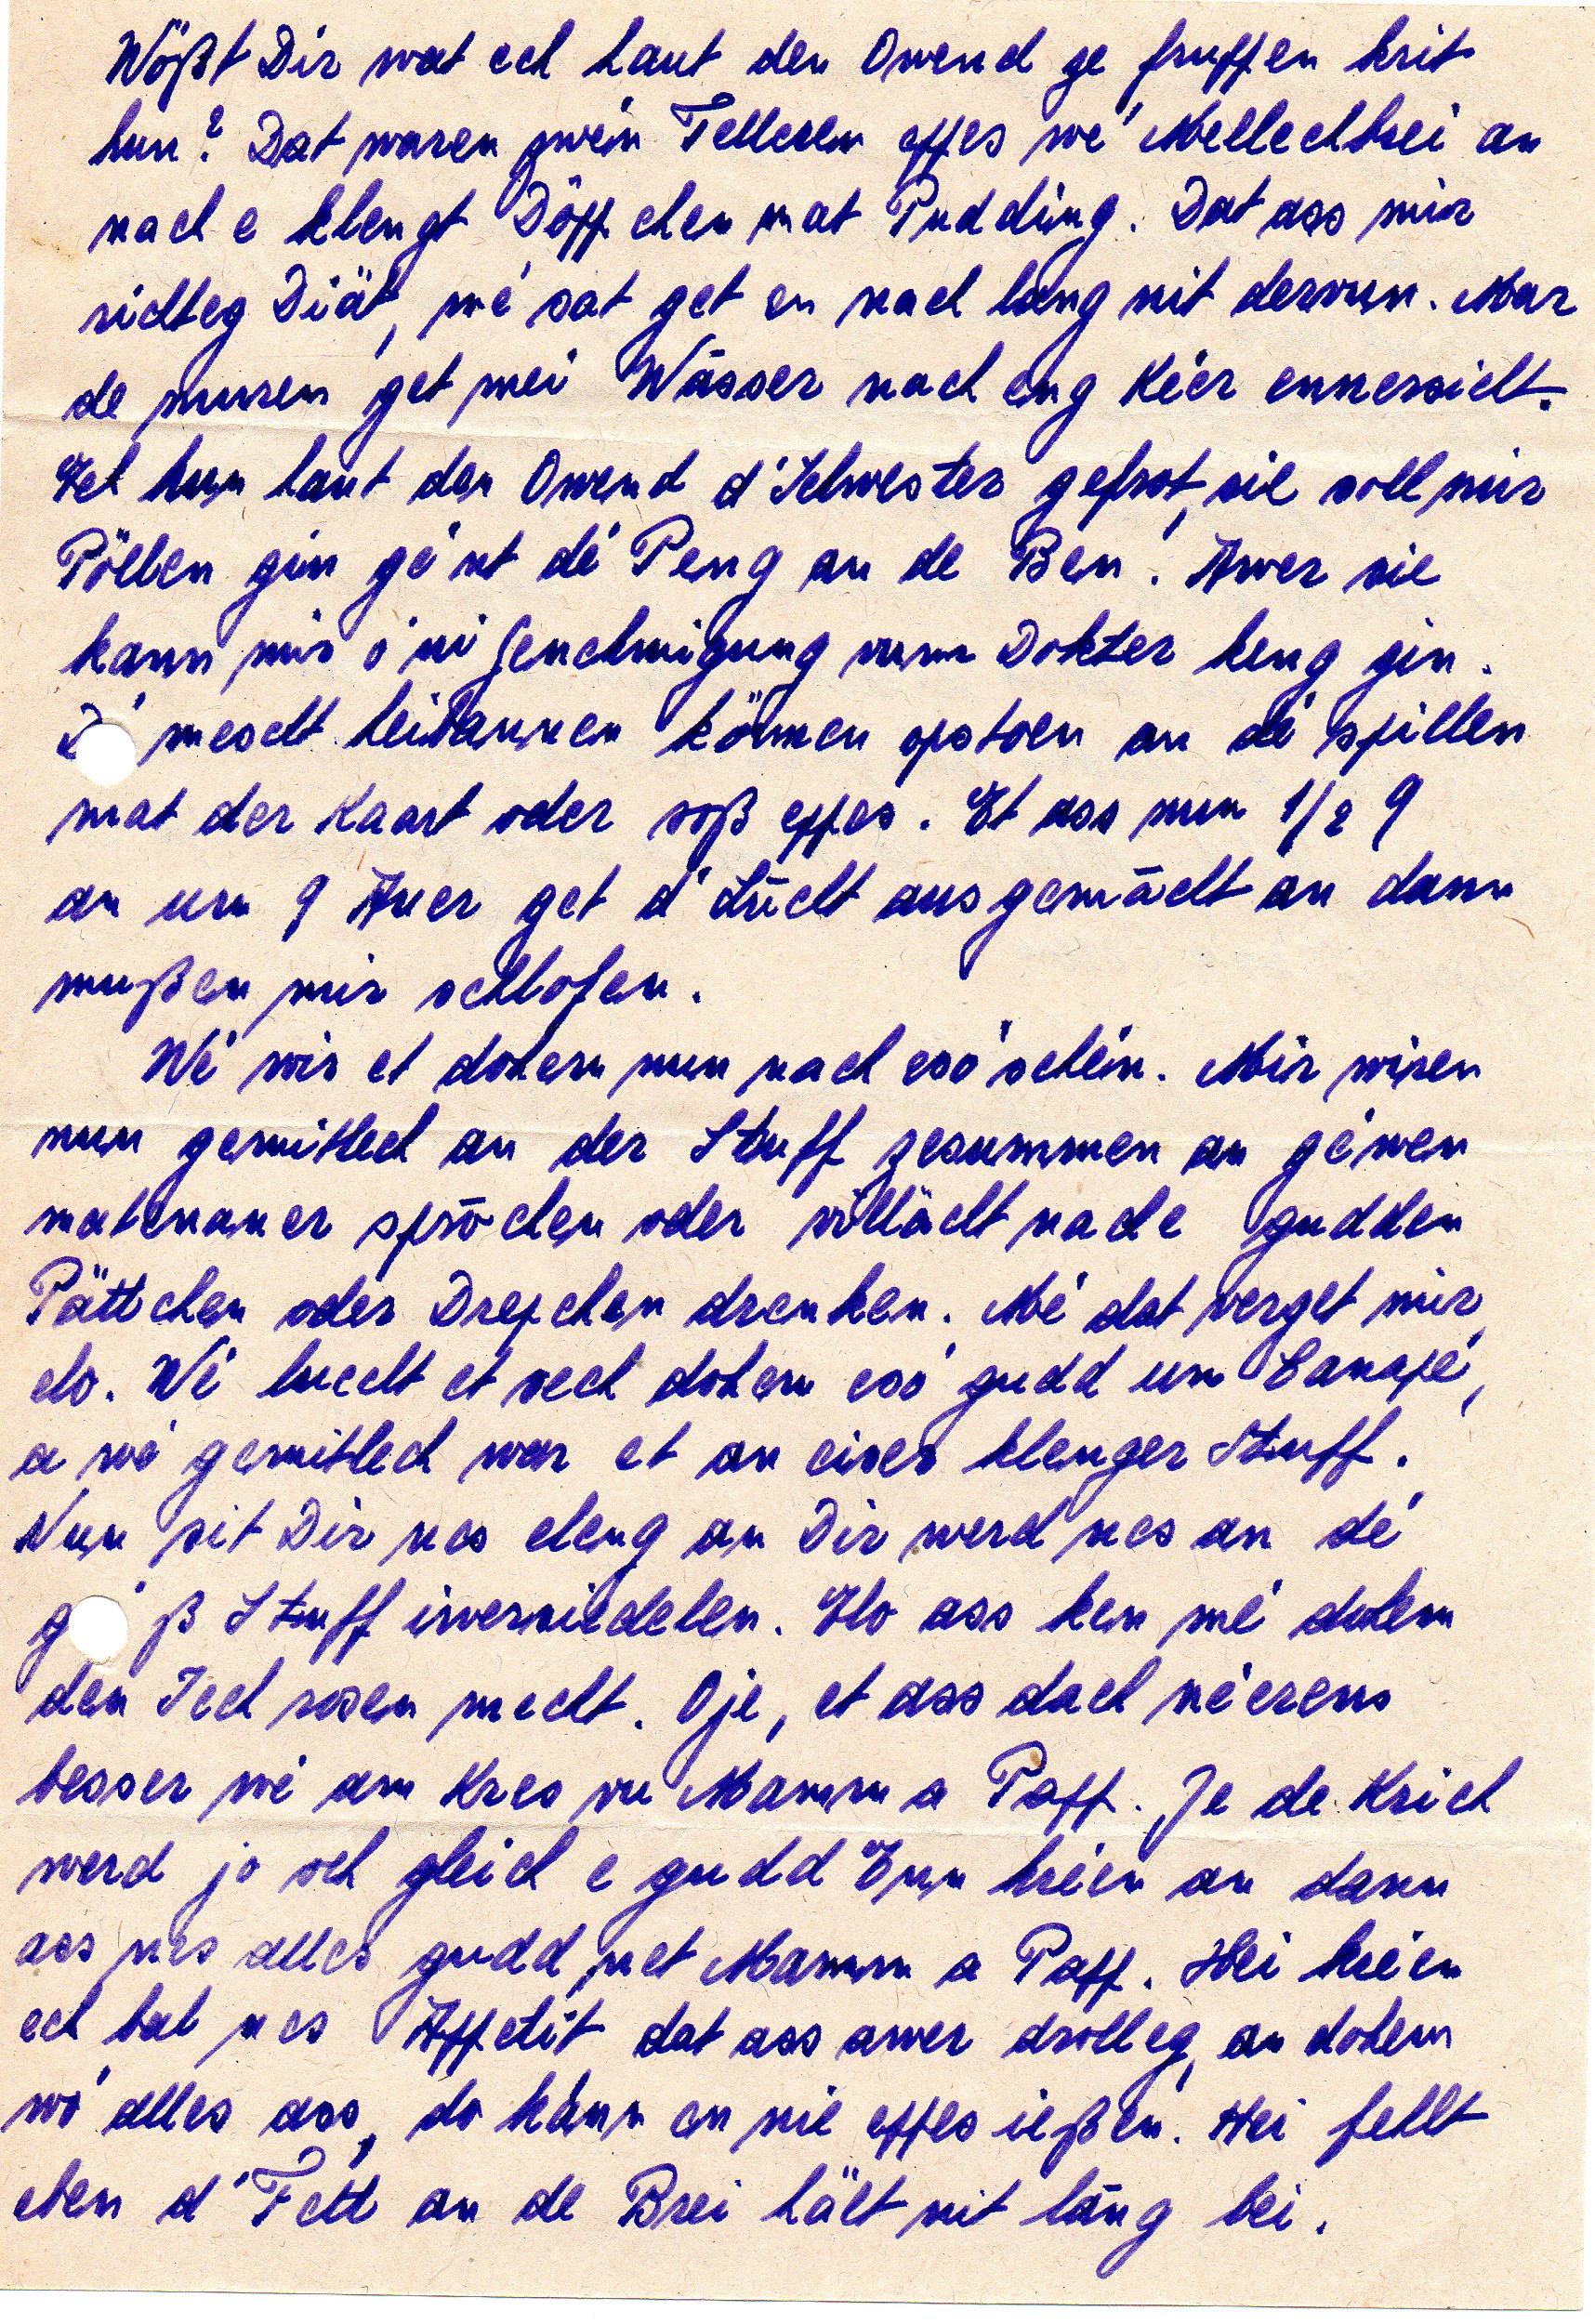 Wößt Dir wat ech haut den Owend ze fruppen krit
hun? Dat waren zwéin Telleren eppes wé Mellechbrei an
nach e klengt Döppchen mat Pudding. Dat ass mir
richteg Diät, wé sat get en nach lang nit dervun. Mar
de muren get mei Wāsser nach eng Kéer ennersicht.
Ech hun haut den Owend d'Schwester gefrot, sie soll mir
Pöllen gin gént dé Peng an de Ben. Awer sie
kann mir ó'ni Genehmigung vum Dokter keng gin.
mescht heibannen können opstoen an dé spillen
mat der Kaart oder soß eppes. Et ass nun 1/2 9
an um 9 Auer get d'Lūcht ausgemācht an dann
mußen mir schlofen.
Wé wir et dohem nun nach esó schéin. Mir wiren
nun gemitlech an der Stuff zesummen an géwen
matenaner sprōchen oder villächt nach e gudden
Pättchen oder Drepchen drenken. Mé dat verget mir
elo. Wé huecht et sech dohem esó gudd um Canapé,
a wé gemitlech war et an eiser klenger Stuff.
Nun sit Dir nes eleng an Dir werd nes an dé
g ß Stuff iwersiedelen. Elo ass ken mé dohem
den Iech rosen mecht. Oje, et ass dach néerens
besser wé am Kres vu Mamm a Papp. Je de Krich
werd jo och gleich e gudd Enn kréien an dann
ass nes alles gudd, net Mamm a Papp. Hei kréien
ech bal nes Appetit dat ass awer drolleg, an dohem
wó alles ass, do kānn en nie eppes ießen. Hei fehlt
eben d'Fett an de Brei hält nit lāng bei.